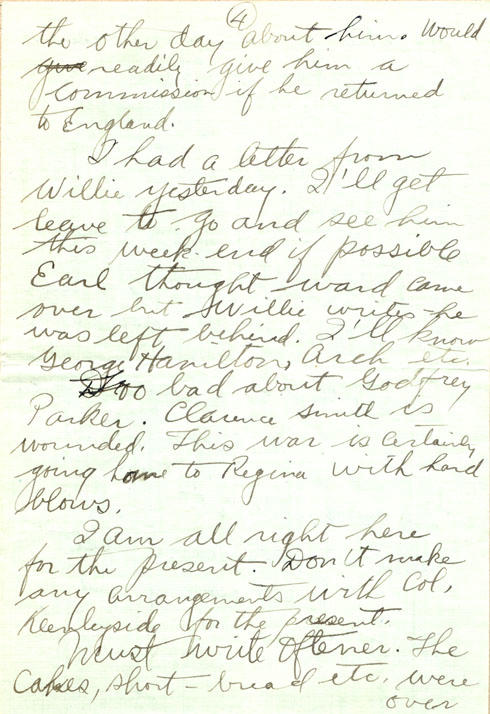 4
the other day about him. Would
give readily give him a
commission if he returned
to England.
I had a letter from
Willie yesterday. I'll get
leave to go and see him
this week-end if possible
Earl thought Ward came
over but Willie writes he
was left behind. I'll know
George Hamilton, Arch etc.
Too bad about Godfrey
Parker. Clarence Smith is
wounded. This war is certainly
going home to Regina with hard
blows.
I am all right here
for the present. Don't make
any arrangements with Col.
Keenleyside for the present.
Must write oftener. The
Cakes, short-bread etc. were
over